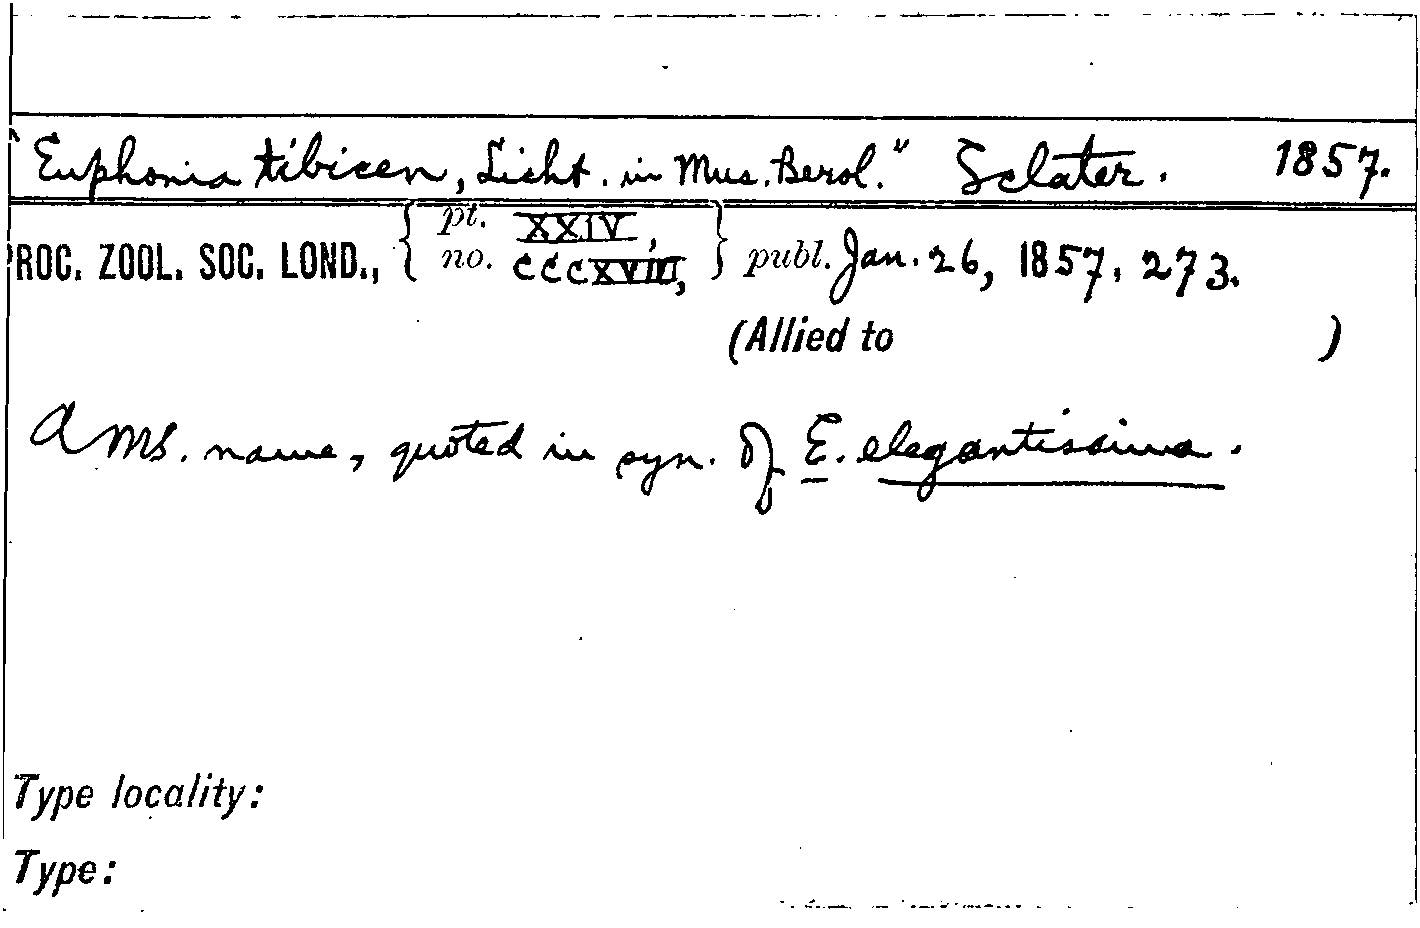 "Euphonia tibicen, Licht. in Mus. Berol." Sclater. 1857.
PROC. ZOOL. SOC. LOND., { pt. XXIV, no. CCCXVIII, } publ. Jan. 26, 1857, 273.
(Allied to )
A MS. name, quoted in syn. of E. elegantissima.
Type locality:
Type: